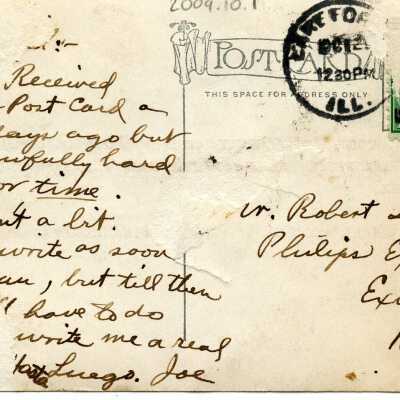 2009.10.1
POST CARD
THIS SPACE FOR ADDRESS ONLY
OCT 2
12:30 PM
ILL.
Received
Post Card a
days ago but
awfully hard
or time.
a bit.
write as soon
an, but till then
'll have to do
write me a real
hasta Luego. Joe
r. Robert
Philips E
Ex